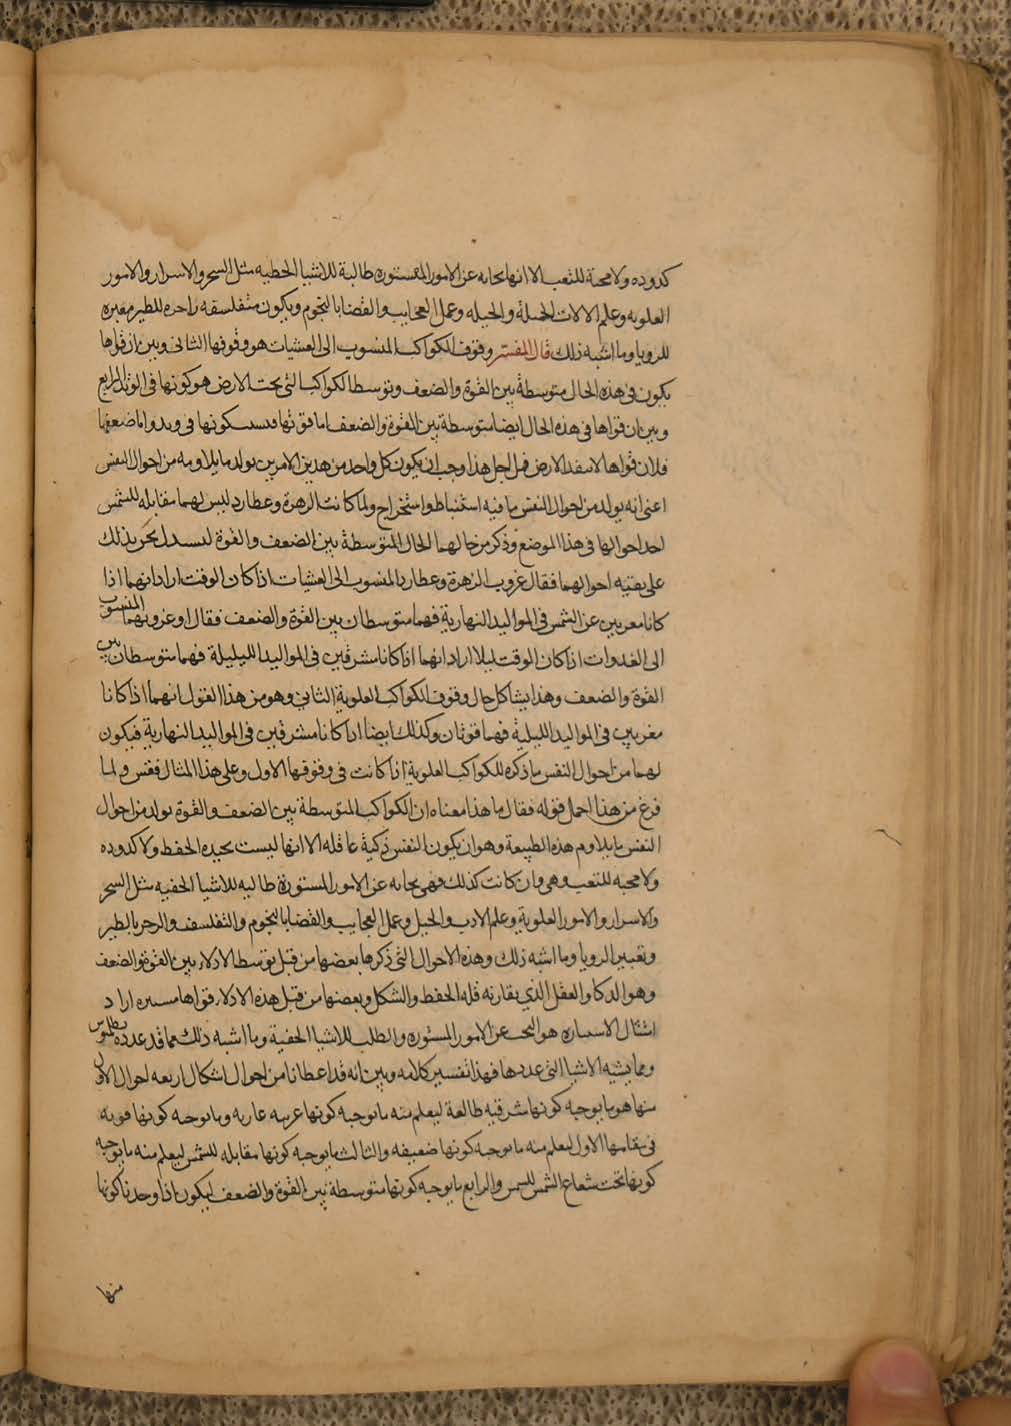 كدوده ولا محبة للتعب الا انها بحاثه عن الامور المستوره طالبة للاشيا الخفيه مثل السحر والاسرار والامور
العلويه وعلم الالات الحيلية والحيله وعمل العجايب والقضايا بالنجوم ويكون متفلسفه زاجره للطير معبره
للرويا وما اشبه ذلك قال المفسر وقوف الكواكب المنسوب الى العشيات هو وقوفها الثانى وبين ان قواها
يكون فى هذه الحال متوسطة بين القوة والضعف وتوسط الكواكب التى تحت الارض هو كونها فى الوتد الرابع
وبين ان قواها فى هذه الحال ايضا متوسطة بين القوة والضعف اما قوتها فبسبب كونها فى وتد واما ضعفها
فلان قواها لا تنفذ الارض فمن اجل هذا وجب ان يكون كل واحد من هذين الامرين يولد ما يلاومه من احوال النفس
اعنى انه يولد من احوال النفس ما فيه استنباط واستخراج ولما كانت الزهرة وعطارد ليس لهما مقابله للشمس
احد احوالها فى هذا الموضع وذكر من حالهما الحال المتوسطة بين الضعف والقوة ليستدل بذلك
على بقيه احوالهما فقال غروب الزهرة وعطارد المنسوب الى العشيات اذا كان الوقت اراد انهما اذا
كانا مغربين عن الشمس فى المواليد النهارية فهما متوسطان بين القوة والضعف فقال او غروبهما المنسوب
الى الغدوات اذا كان الوقت ليلا اراد انهما اذا كانا مشرقين فى المواليد الليلية فهما متوسطان بين
القوة والضعف وهذا يشاكل حال وقوف الكواكب العلوية الثانى وهو من هذا القول انهما اذا كانا
مغربين فى المواليد الليلية فهما قويان وكذلك ايضا اذا كانا مشرقين فى المواليد النهارية فيكون
لهما من احوال النفس ما ذكره للكواكب العلوية اذا كانت فى وقوفها الاول وعلى هذا المثال فقس ولما
فرغ من هذا اجمل قوله فقال ما هذا معناه ان الكواكب المتوسطة بين الضعف والقوة تولد من احوال
النفس ما يلاوم هذه الطبيعة وهو ان يكون النفس ذكية عاقله الا انها ليست بجيده الحفظ ولا كدوده
ولا محبه للتعب وهى وان كانت كذلك فهى بحاثه عن الامور المستورة طالبه للاشيا الخفيه مثل السحر
والاسرار والامور العلوية وعلم الادب والحيل وعمل العجايب والقضايا بالنجوم والتفلسف والزجر بالطير
وتعبير الرويا وما اشبه ذلك وهذه الاحوال التى ذكرها بعضها من قبل توسط الادلاء بين القوة والضعف
وهو الذكا والعقل الذي يقارنه قله الحفظ والشكل وبعضها من قبل هذه الادلاء قواها اراد
هو البحث عن الامور المستوره والطلب للاشيا الخفية وما اشبه ذلك مما قد عدده بطلميوس
ومما يشبه الاشيا التى عددها فهذا تفسير كلامه وبين انه قد اعطانا من احوال اشكال اربعه احوال الاول
منها هو ما يوجبه كونها مشرقيه طالعة ليعلم منه ما يوجبه كونها غربيه غاربه وما يوجبه كونها قويه
فى مقامها الاول ليعلم منه ما يوجبه كونها ضعيفه والثالث ما يوجبه كونها مقابله للشمس ليعلم منه ما يوجبه
كونها تحت شعاع الشمس والرابع ما يوجبه كونها متوسطة بين القوة والضعف ليكون اذا وجدنا كونها
منها